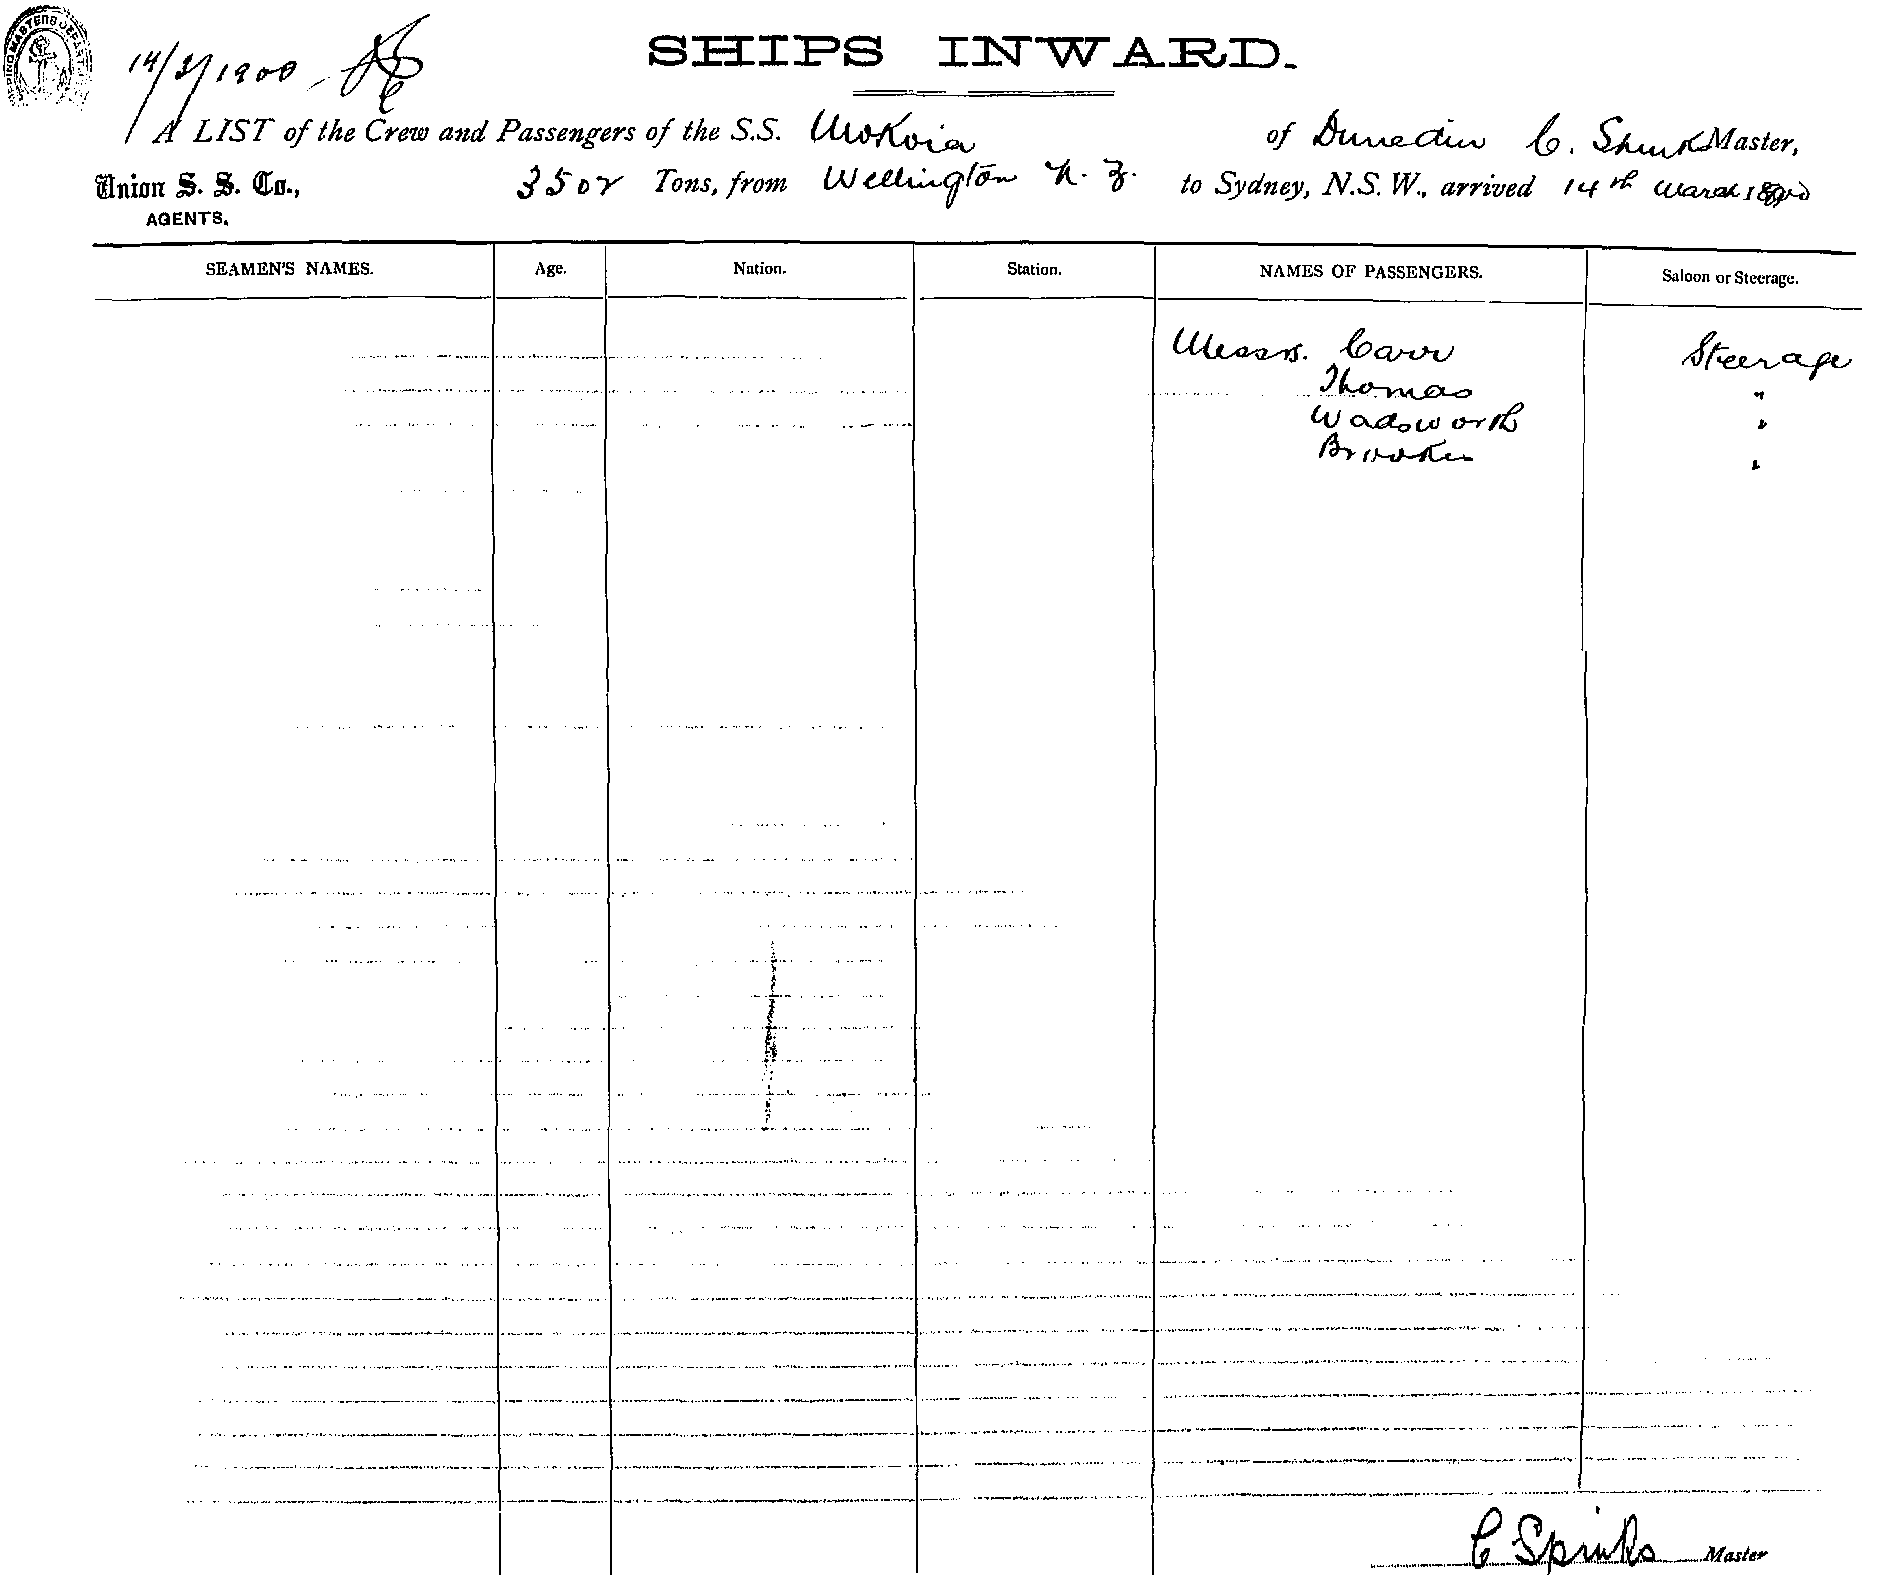 SHIPPING MASTERS DEPART
14/3/1900
SHIPS INWARD.
A LIST of the Crew and Passengers of the S.S. Mokoia of Dunedin C. Spinks Master,
Union S. S. Co., 3502 Tons, from Wellington N. Z. to Sydney, N.S.W., arrived 14th March 1900
AGENTS.
SEAMEN'S NAMES. Age. Nation. Station. NAMES OF PASSENGERS. Saloon or Steerage.
Messrs. Carr Steerage
Thomas "
Wadsworth "
Brookes "
C Spinks Master